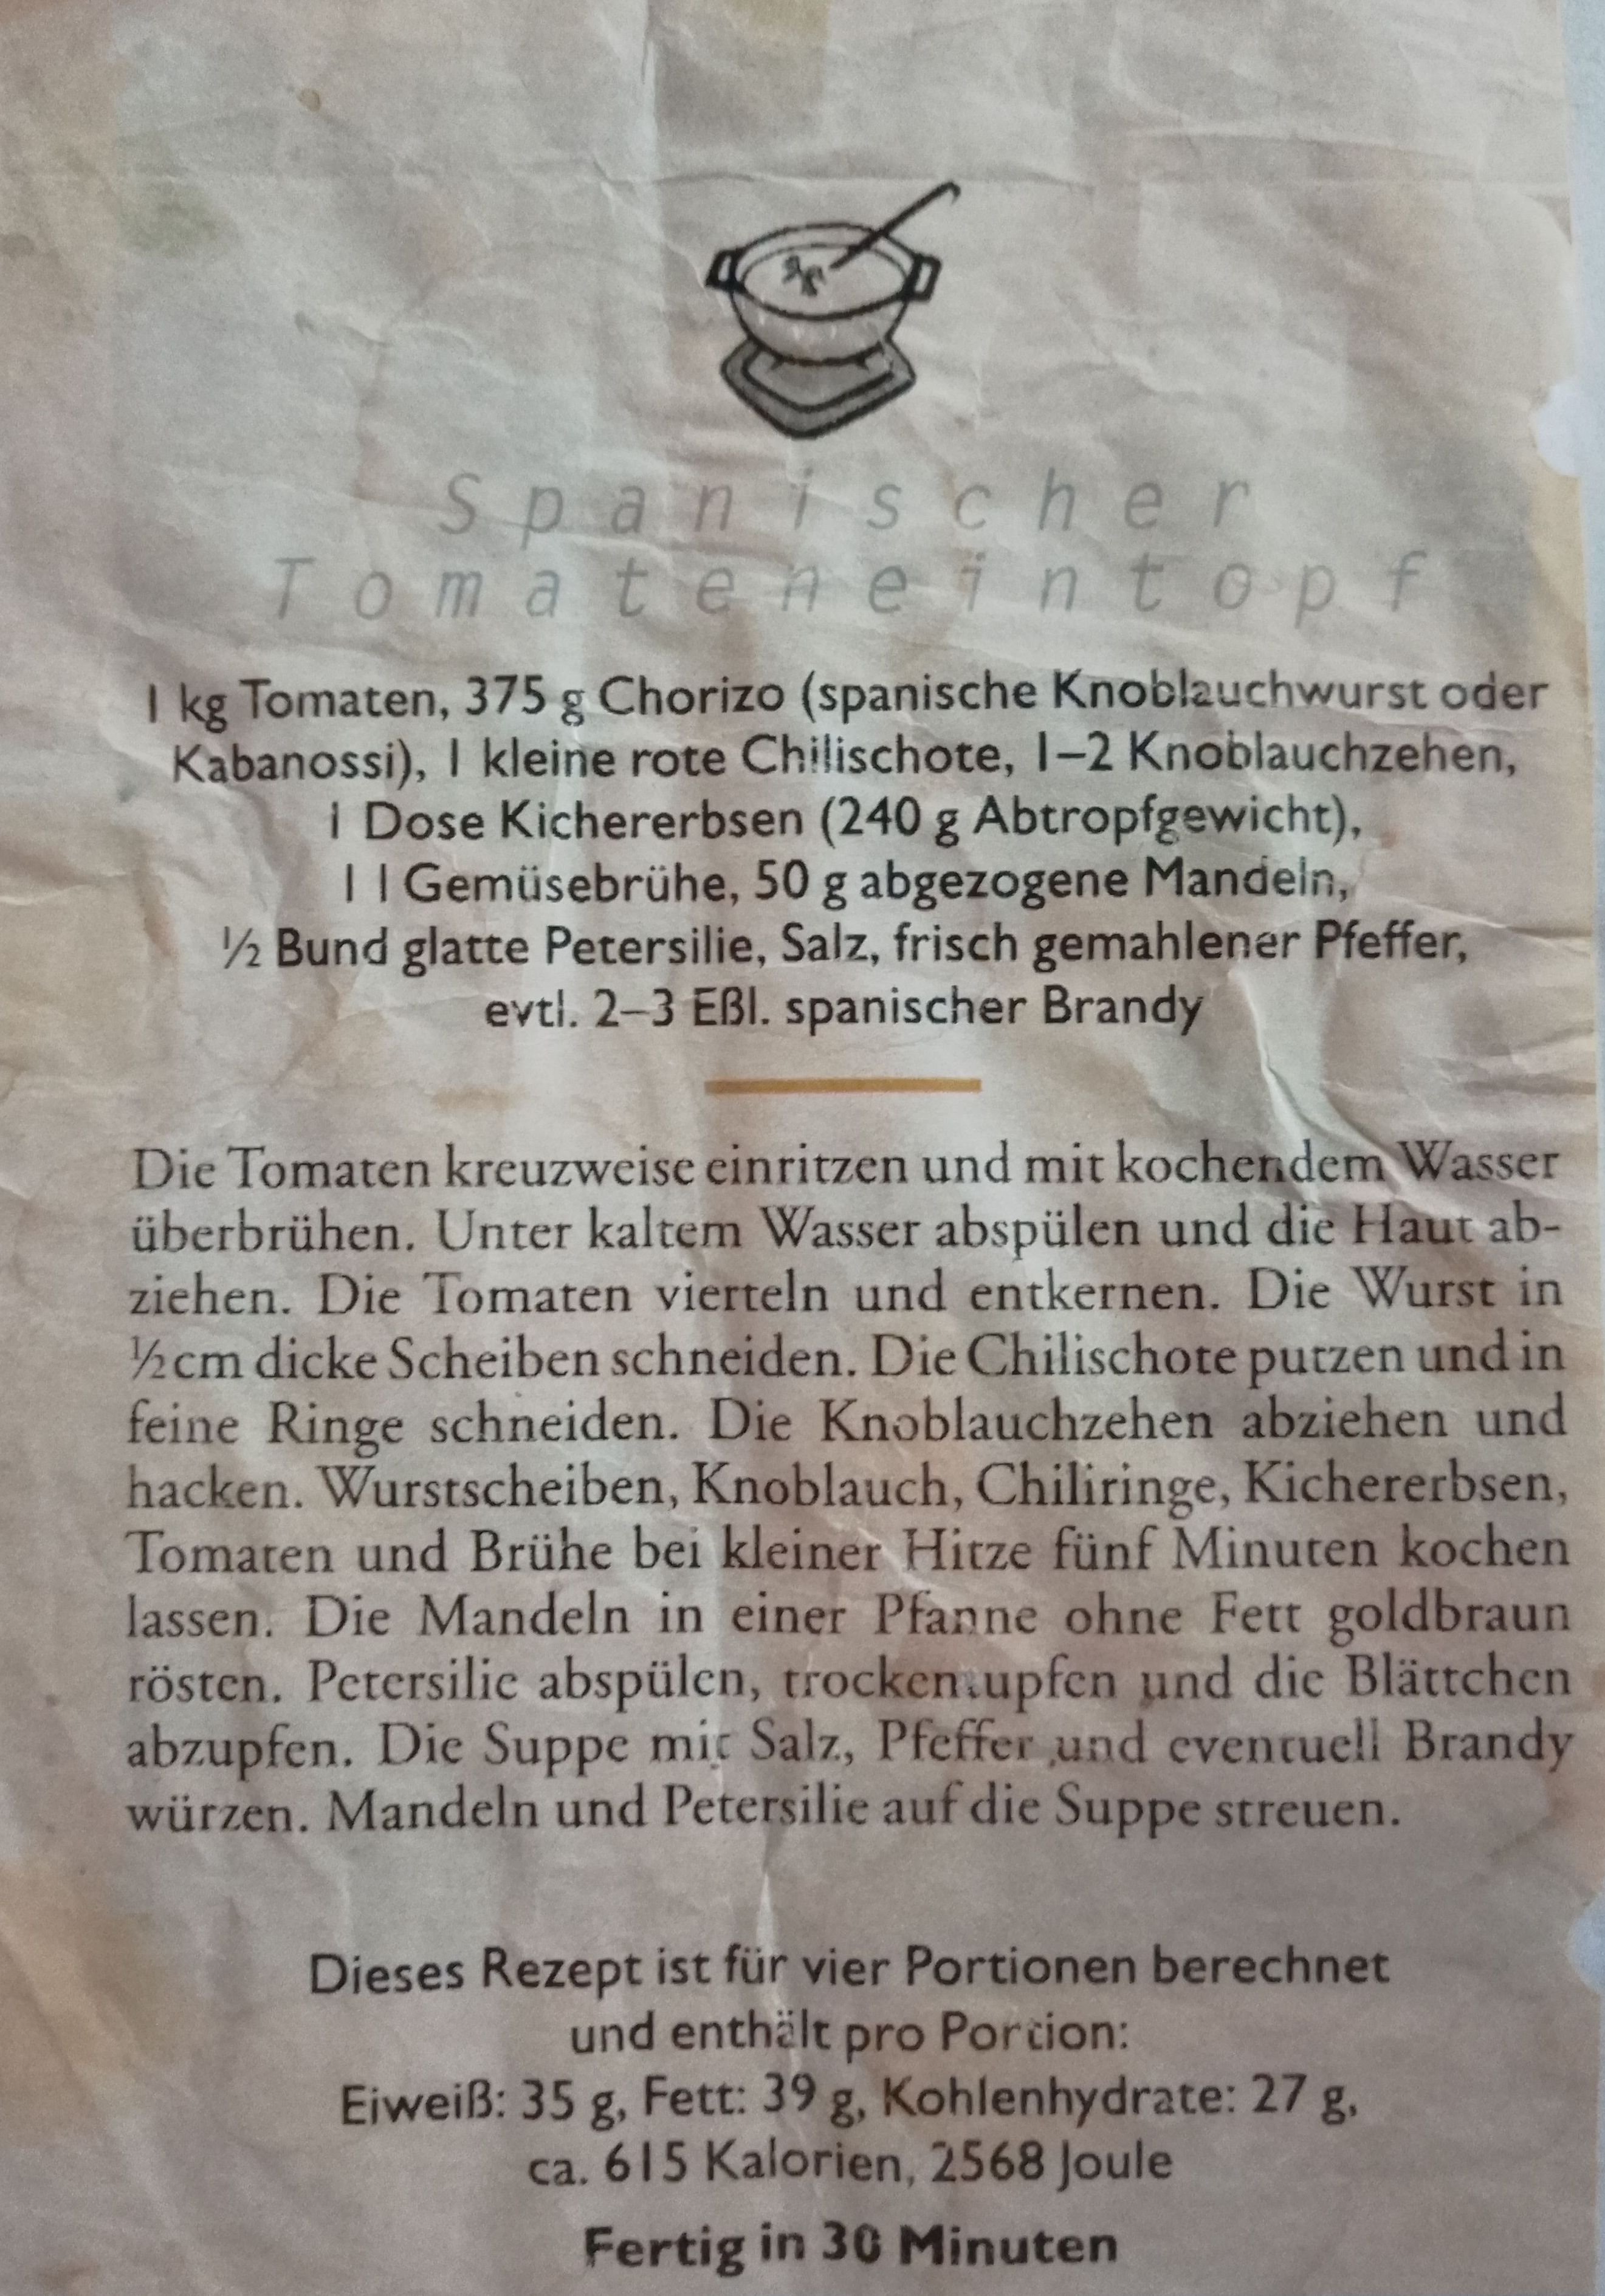 Spanischer
Tomateneintopf
1 kg Tomaten, 375 g Chorizo (spanische Knoblauchwurst oder
Kabanossi), 1 kleine rote Chilischote, 1–2 Knoblauchzehen,
1 Dose Kichererbsen (240 g Abtropfgewicht),
1 l Gemüsebrühe, 50 g abgezogene Mandeln,
½ Bund glatte Petersilie, Salz, frisch gemahlener Pfeffer,
evtl. 2–3 Eßl. spanischer Brandy
Die Tomaten kreuzweise einritzen und mit kochendem Wasser
überbrühen. Unter kaltem Wasser abspülen und die Haut ab-
ziehen. Die Tomaten vierteln und entkernen. Die Wurst in
½ cm dicke Scheiben schneiden. Die Chilischote putzen und in
feine Ringe schneiden. Die Knoblauchzehen abziehen und
hacken. Wurstscheiben, Knoblauch, Chiliringe, Kichererbsen,
Tomaten und Brühe bei kleiner Hitze fünf Minuten kochen
lassen. Die Mandeln in einer Pfanne ohne Fett goldbraun
rösten. Petersilie abspülen, trockentupfen und die Blättchen
abzupfen. Die Suppe mit Salz, Pfeffer und eventuell Brandy
würzen. Mandeln und Petersilie auf die Suppe streuen.
Dieses Rezept ist für vier Portionen berechnet
und enthält pro Portion:
Eiweiß: 35 g, Fett: 39 g, Kohlenhydrate: 27 g,
ca. 615 Kalorien, 2568 Joule
Fertig in 30 Minuten